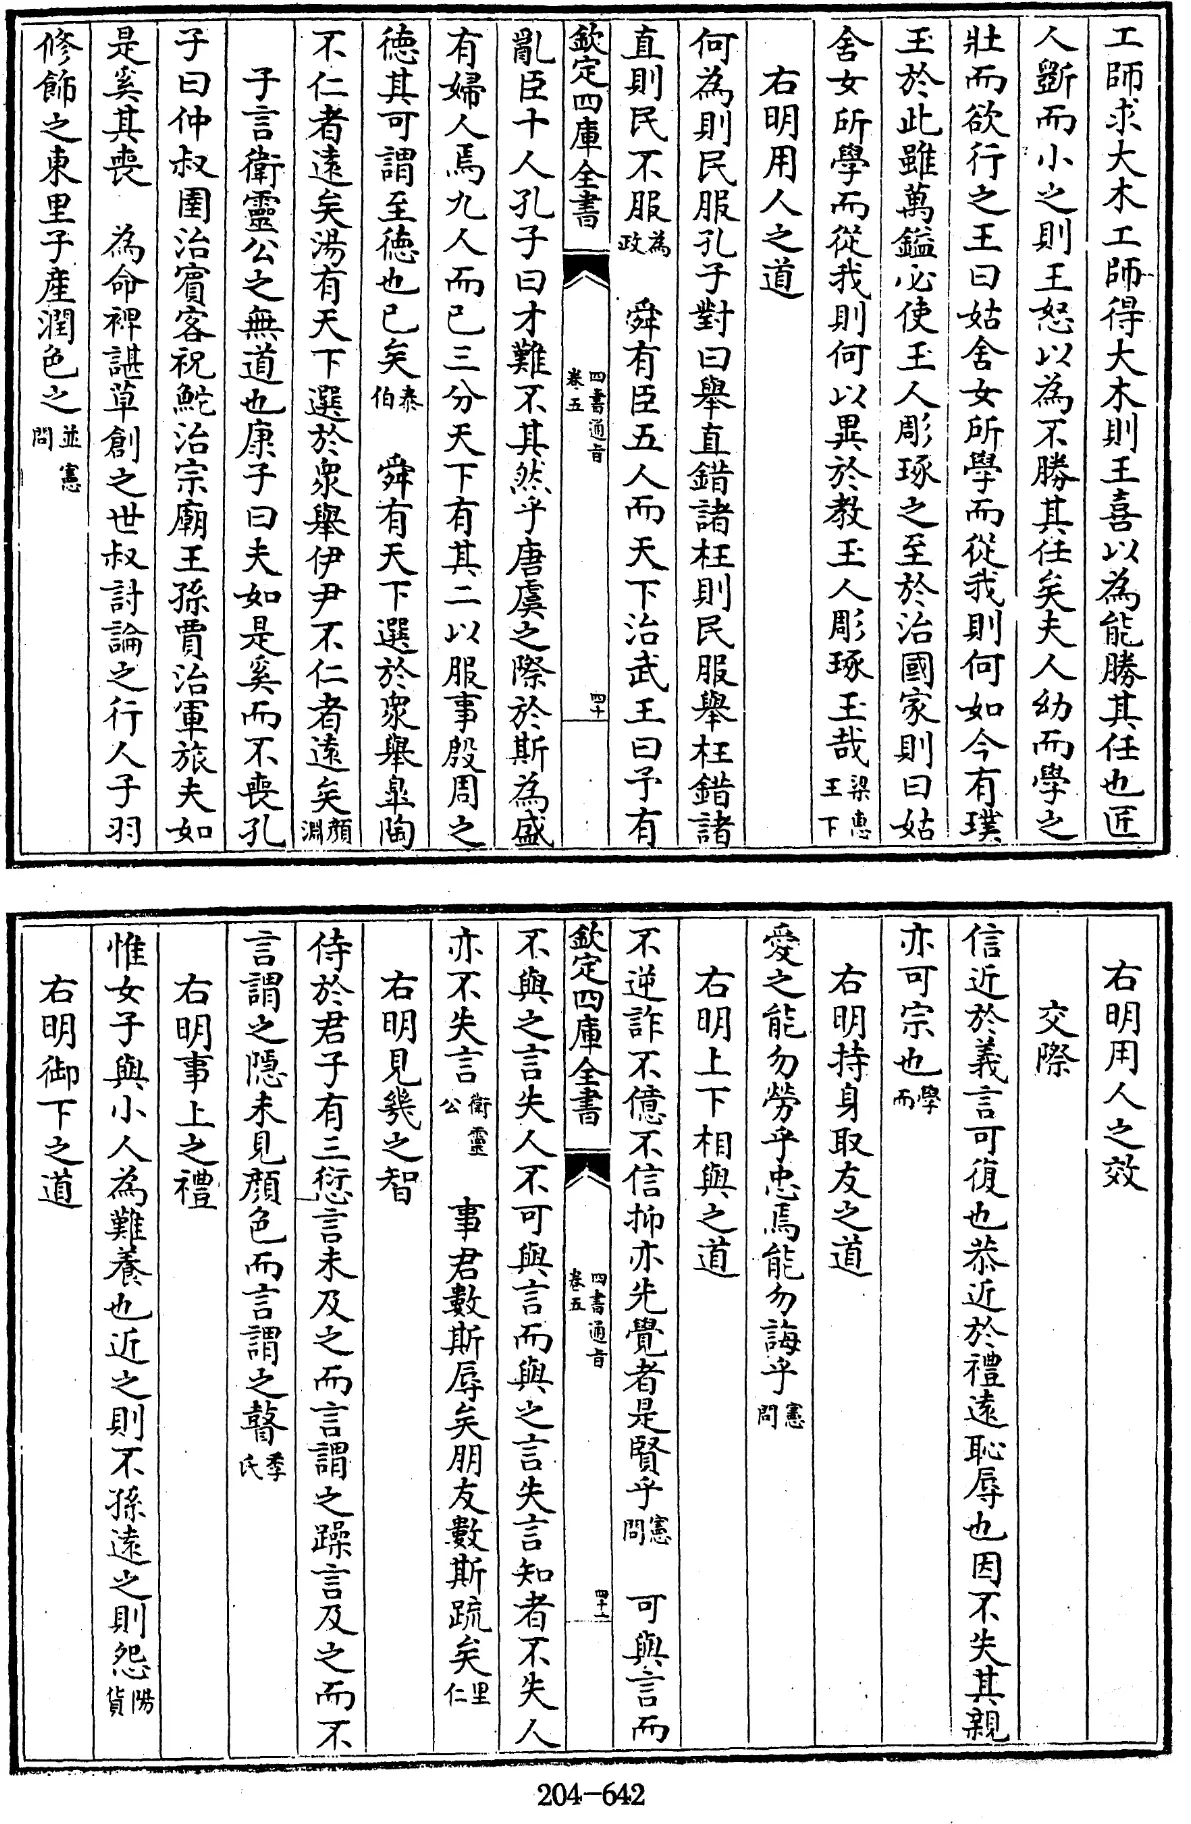 工師求大木工師得大木則王喜以為能勝其任也匠
人斵而小之則王怒以為不勝其任矣夫人幼而學之
壯而欲行之王曰姑舍女所學而從我則何如今有璞
玉於此雖萬鎰必使玉人彫琢之至於治國家則曰姑
舍女所學而從我則何以異於教玉人彫琢玉哉梁惠王下
右明用人之道
何為則民服孔子對曰舉直錯諸枉則民服舉枉錯諸
直則民不服為政 舜有臣五人而天下治武王曰予有
欽定四庫全書 四書通旨卷五 四十
亂臣十人孔子曰才難不其然乎唐虞之際於斯為盛
有婦人焉九人而已三分天下有其二以服事殷周之
德其可謂至德也已矣泰伯 舜有天下選於衆舉臯陶
不仁者遠矣湯有天下選於衆舉伊尹不仁者遠矣顏淵
子言衛靈公之無道也康子曰夫如是奚而不喪孔
子曰仲叔圉治賓客祝鮀治宗廟王孫賈治軍旅夫如
是奚其喪 為命裨諶草創之世叔討論之行人子羽
修飾之東里子産潤色之並憲問
右明用人之效
交際
信近於義言可復也恭近於禮遠恥辱也因不失其親
亦可宗也學而
右明持身取友之道
愛之能勿勞乎忠焉能勿誨乎憲問
右明上下相與之道
不逆詐不億不信抑亦先覺者是賢乎憲問 可與言而
欽定四庫全書 四書通旨卷五 四十一
不與之言失人不可與言而與之言失言知者不失人
亦不失言衛靈公 事君數斯辱矣朋友數斯疏矣里仁
右明見幾之智
侍於君子有三愆言未及之而言謂之躁言及之而不
言謂之隱未見顏色而言謂之瞽季氏
右明事上之禮
惟女子與小人為難養也近之則不孫遠之則怨陽貨
右明御下之道
204-642